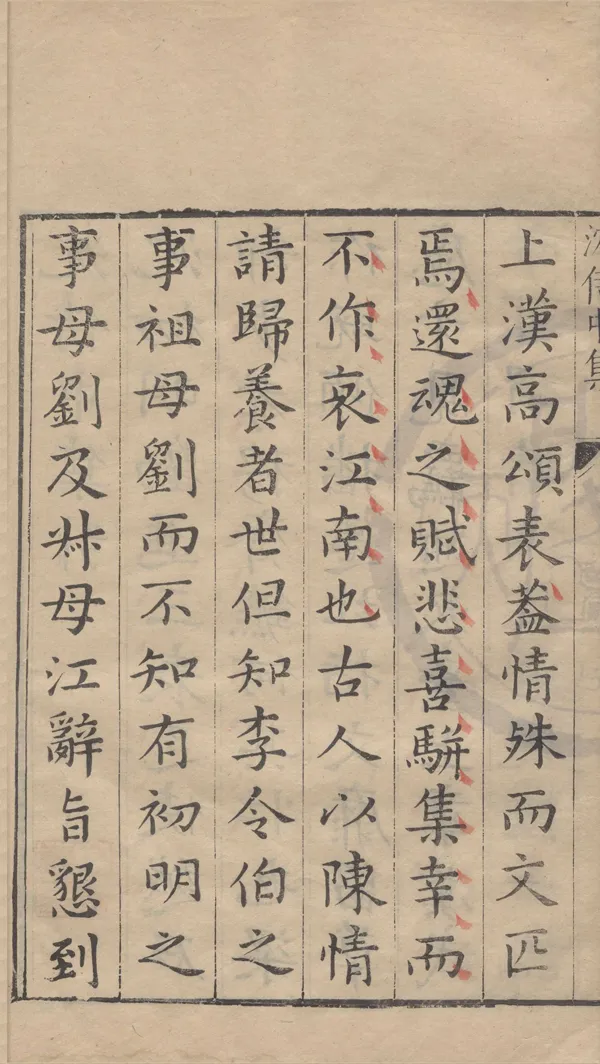 沈侍中集
上漢高頌表葢情殊而文匹
焉還魂之賦悲喜駢集幸而
不作哀江南也古人以陳情
請歸養者世但知李令伯之
事祖母劉而不知有初明之
事母劉及叔母江辭旨懇到